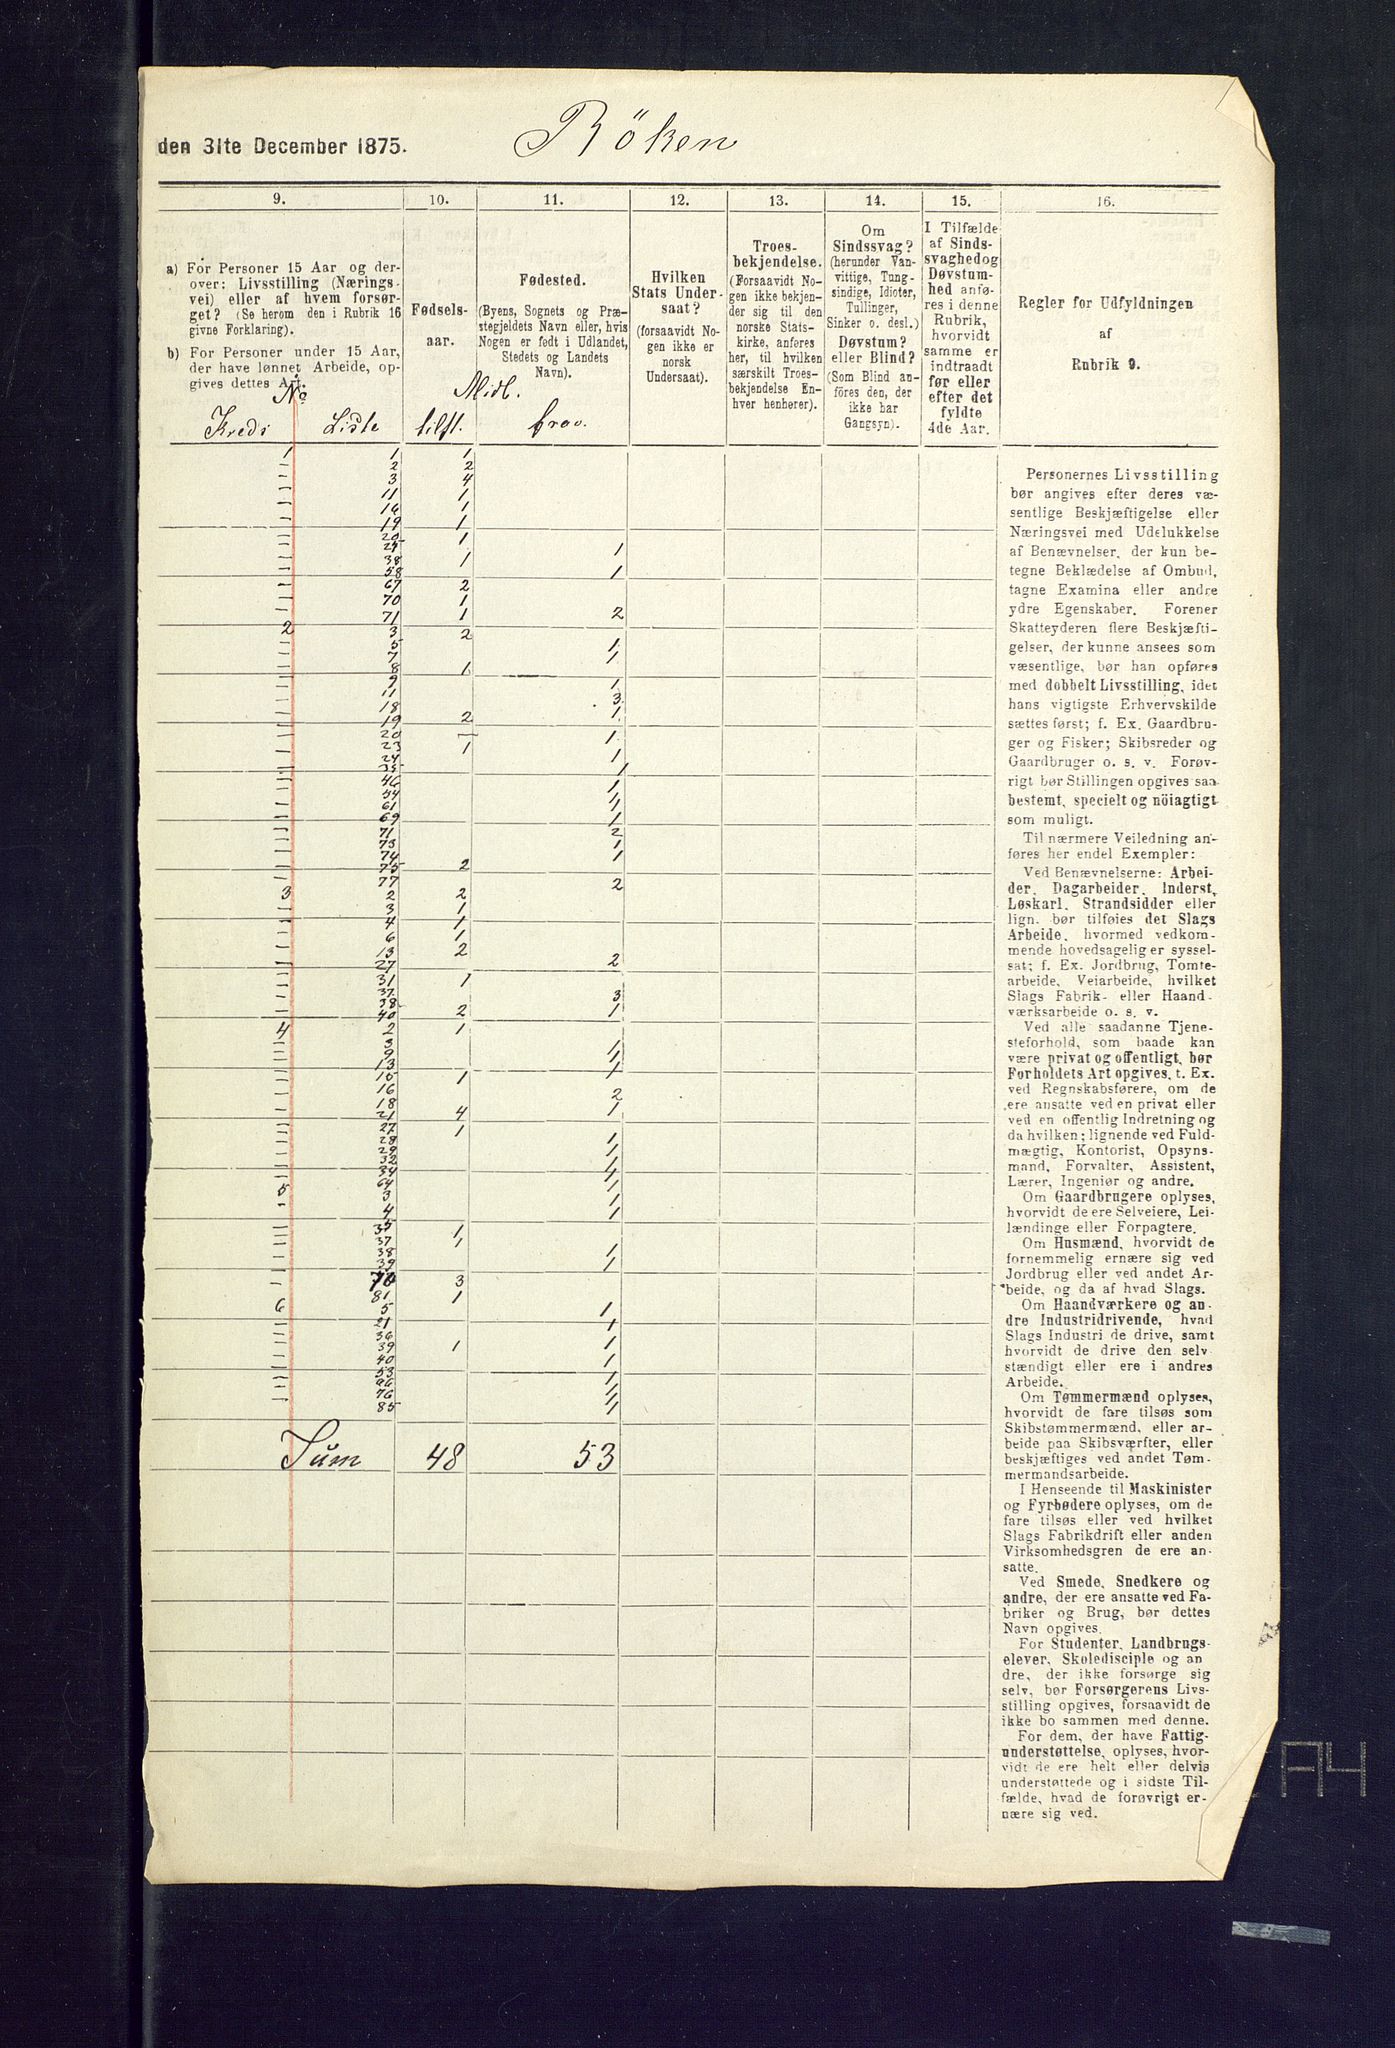 den 31te December 1875.
Röken
9.
10.
11.
12.
13.
14.
15.
16.
a) For Personer 15 Aar og der-
over: Livsstilling (Nærings-
vei) eller af hvem forsør-
get? (Se herom den i Rubrik 16
givne Forklaring).
b) For Personer under 15 Aar,
der have lønnet Arbeide, op-
gives dettes Art.
Fødsels-
aar.
Fødested.
(Byens, Sognets og Præ-
stegjeldets Navn eller, hvis
Nogen er født i Udlandet,
Stedets og Landets
Navn).
Hvilken
Stats Under-
saat?
(forsaavidt No-
gen ikke er
norsk
Undersaat).
Troes-
bekjendelse.
(Forsaavidt No-
gen ikke bekjen-
der sig til den
norske Stats-
kirke, anføres
her, til hvilken
særskilt Troes-
bekjendelse En-
hver henhører).
Om
Sindssvag?
(herunder Van-
vittige, Tung-
sindige, Idioter,
Tullinger,
Sinker o. desl.)
Døvstum?
eller Blind?
(Som Blind an-
föres den, der
ikke har
Gangsyn).
I Tilfælde
af Sinds-
svaghedog
Døvstum-
hed anfø-
res i denne
Rubrik,
hvorvidt
samme er
indtraadt
før eller
efter det
fyldte
4de Aar.
Regler for Udfyldningen
af
Rubrik 9.
No
Midl.
Kreds Liste tilst. frav.
1 1 1
2 2
3 4
11 1
16 1
19 1
20 1
25 1
38 1
58 1
67 2
70 1
71 1 2
2 3 2
5 1
7 1
8 1
9 1
11 3
18 1
19 2
20 1
23 1
24 1
35 1
46 1
54 1
61 1
69 1
71 2
73 1
74 1
75 2
77 2
3 2 2
3 1
4 1
6 1
13 2
27 2
31 1
37
38 3
40 2 1
4 2 1
3
9 1
13 1
15 1
16 2
18 1
21 4
27 1
28 1
29 1
32 1
34 1
64 1
5 3 1
4 1
35 1
37 1
38 1
39 1
70 3
81 1
6 5 1
21 1
36 1
39 1
40 1
53 1
76 1
85 1
Sum 48 53
Personernes Livsstilling
bør angives efter deres væ-
sentlige Beskjæftigelse eller
Næringsvei med Udelukkelse
af Benævnelser, der kun be-
tegne Beklædelse af Ombud,
tagne Examina eller andre
ydre Egenskaber. Forener
Skatteyderen flere Beskjæfti-
gelser, der kunne ansees som
væsentlige, bør han opføres
med dobbelt Livsstilling, idet
hans vigtigste Erhvervskilde
sættes først; f. Ex. Gaardbru-
ger og Fisker; Skibsreder og
Gaardbruger o. s. v. Forøv-
rigt bør Stillingen opgives saa
bestemt, specielt og nöiagtigt
som muligt.
Til nærmere Veiledning an-
føres her endel Exempler:
Ved Benævnelserne: Arbei-
der, Dagarbeider, Inderst,
Løskarl, Strandsidder eller
lign. bør tilføies det Slags
Arbeide, hvormed vedkom-
mende hovedsagelig er syssel-
sat; f. Ex. Jordbrug, Tomte-
arbeide, Veiarbeide, hvilket
Slags Fabrik- eller Haand-
værksarbeide o. s. v.
Ved alle saadanne Tjene-
steforhold, som baade kan
være privat og offentligt, bør
Forholdets Art opgives, t. Ex.
ved Regnskabsførere, om de
ere ansatte ved en privat eller
ved en offentlig Indretning og
da hvilken; lignende ved Fuld-
mægtig, Kontorist, Opsyns-
mand, Forvalter, Assistent,
Lærer, Ingeniør og andre.
Om Gaardbrugere oplyses,
hvorvidt de ere Selveiere, Lei-
lændinge eller Forpagtere.
Om Husmænd, hvorvidt de
fornemmelig ernære sig ved
Jordbrug eller ved andet Ar-
beide, og da af hvad Slags.
Om Haandværkere og an-
dre Industridrivende, hvad
Slags Industri de drive, samt
hvorvidt de drive den selv-
stændigt eller ere i andres
Arbeide.
Om Tømmermænd oplyses,
hvorvidt de fare tilsøs som
Skibstømmermænd, eller ar-
beide paa Skibsværfter, eller
beskjæftiges ved andet Tøm-
mermandsarbeide.
I Henseende til Maskinister
og Fyrbødere oplyses, om de
fare tilsøs eller ved hvilket
Slags Fabrikdrift eller anden
Virksomhedsgren de ere an-
satte.
Ved Smede, Snedkere og
andre, der ere ansatte ved Fa-
briker og Brug, bør dettes
Navn opgives.
For Studenter, Landbrugs-
elever, Skoledisciple og an-
dre, der ikke forsørge sig
selv, bør Forsørgerens Livs-
stilling opgives, forsaavidt de
ikke bo sammen med denne.
For dem, der have Fattig-
understøttelse, oplyses, hvor-
vidt de ere helt eller delvis
understøttede og i sidste Til-
fælde, hvad de forøvrigt er-
nære sig ved.
A4